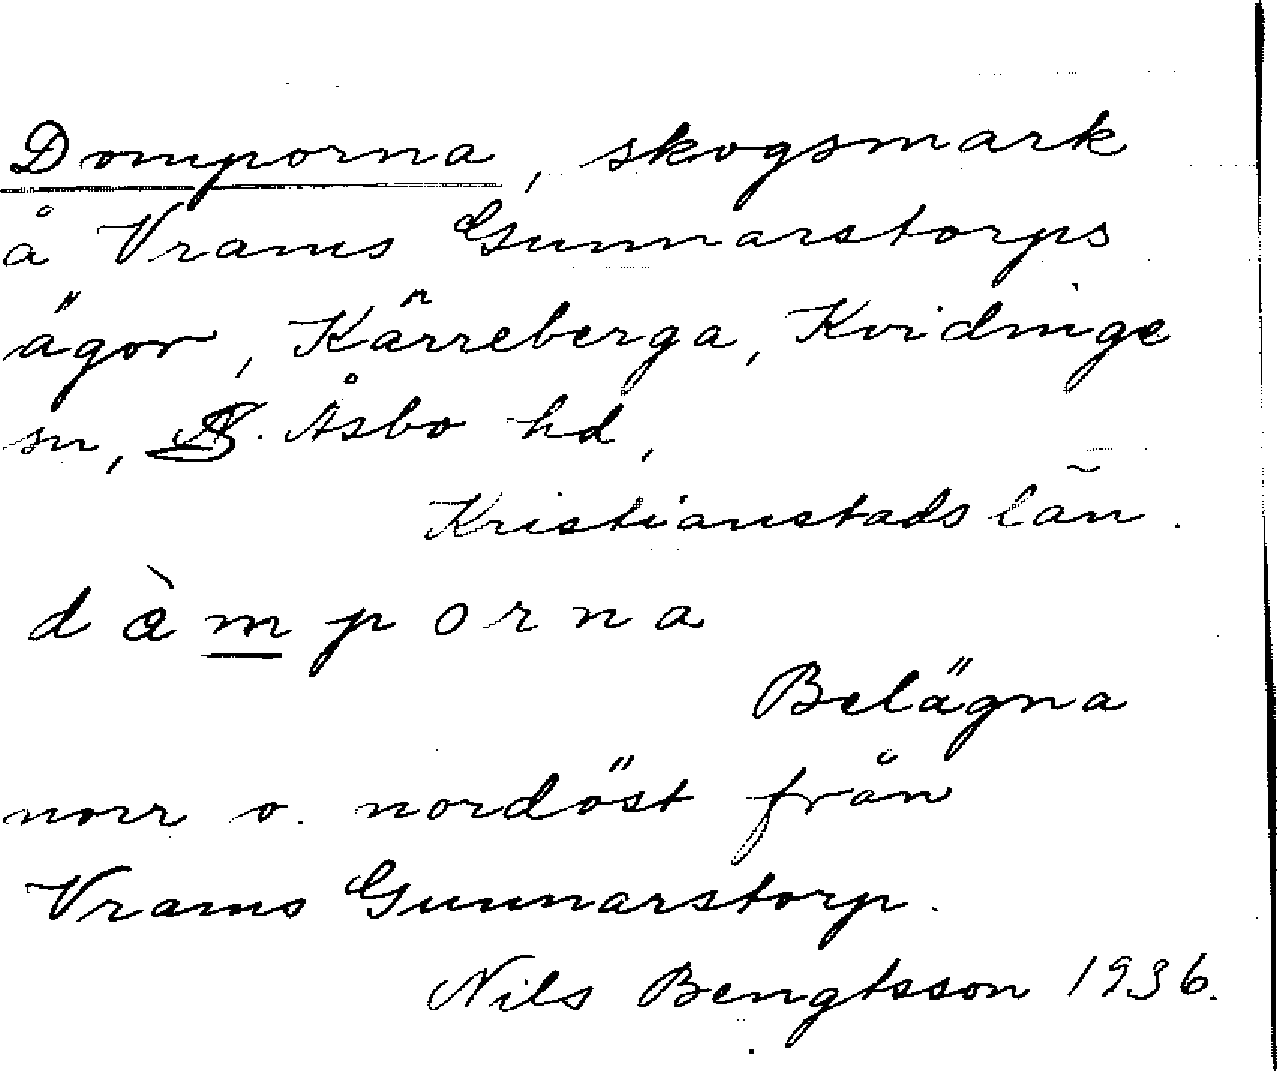 Domporna, skogsmark
å Vrams Gunnarstorps
ägor, Kärreberga, Kvidinge
sn, S. Åsbo hd,
Kristianstads län.
dàmporna
Belägna
norr o. nordöst från
Vrams Gunnarstorp.
Nils Bengtsson 1936.